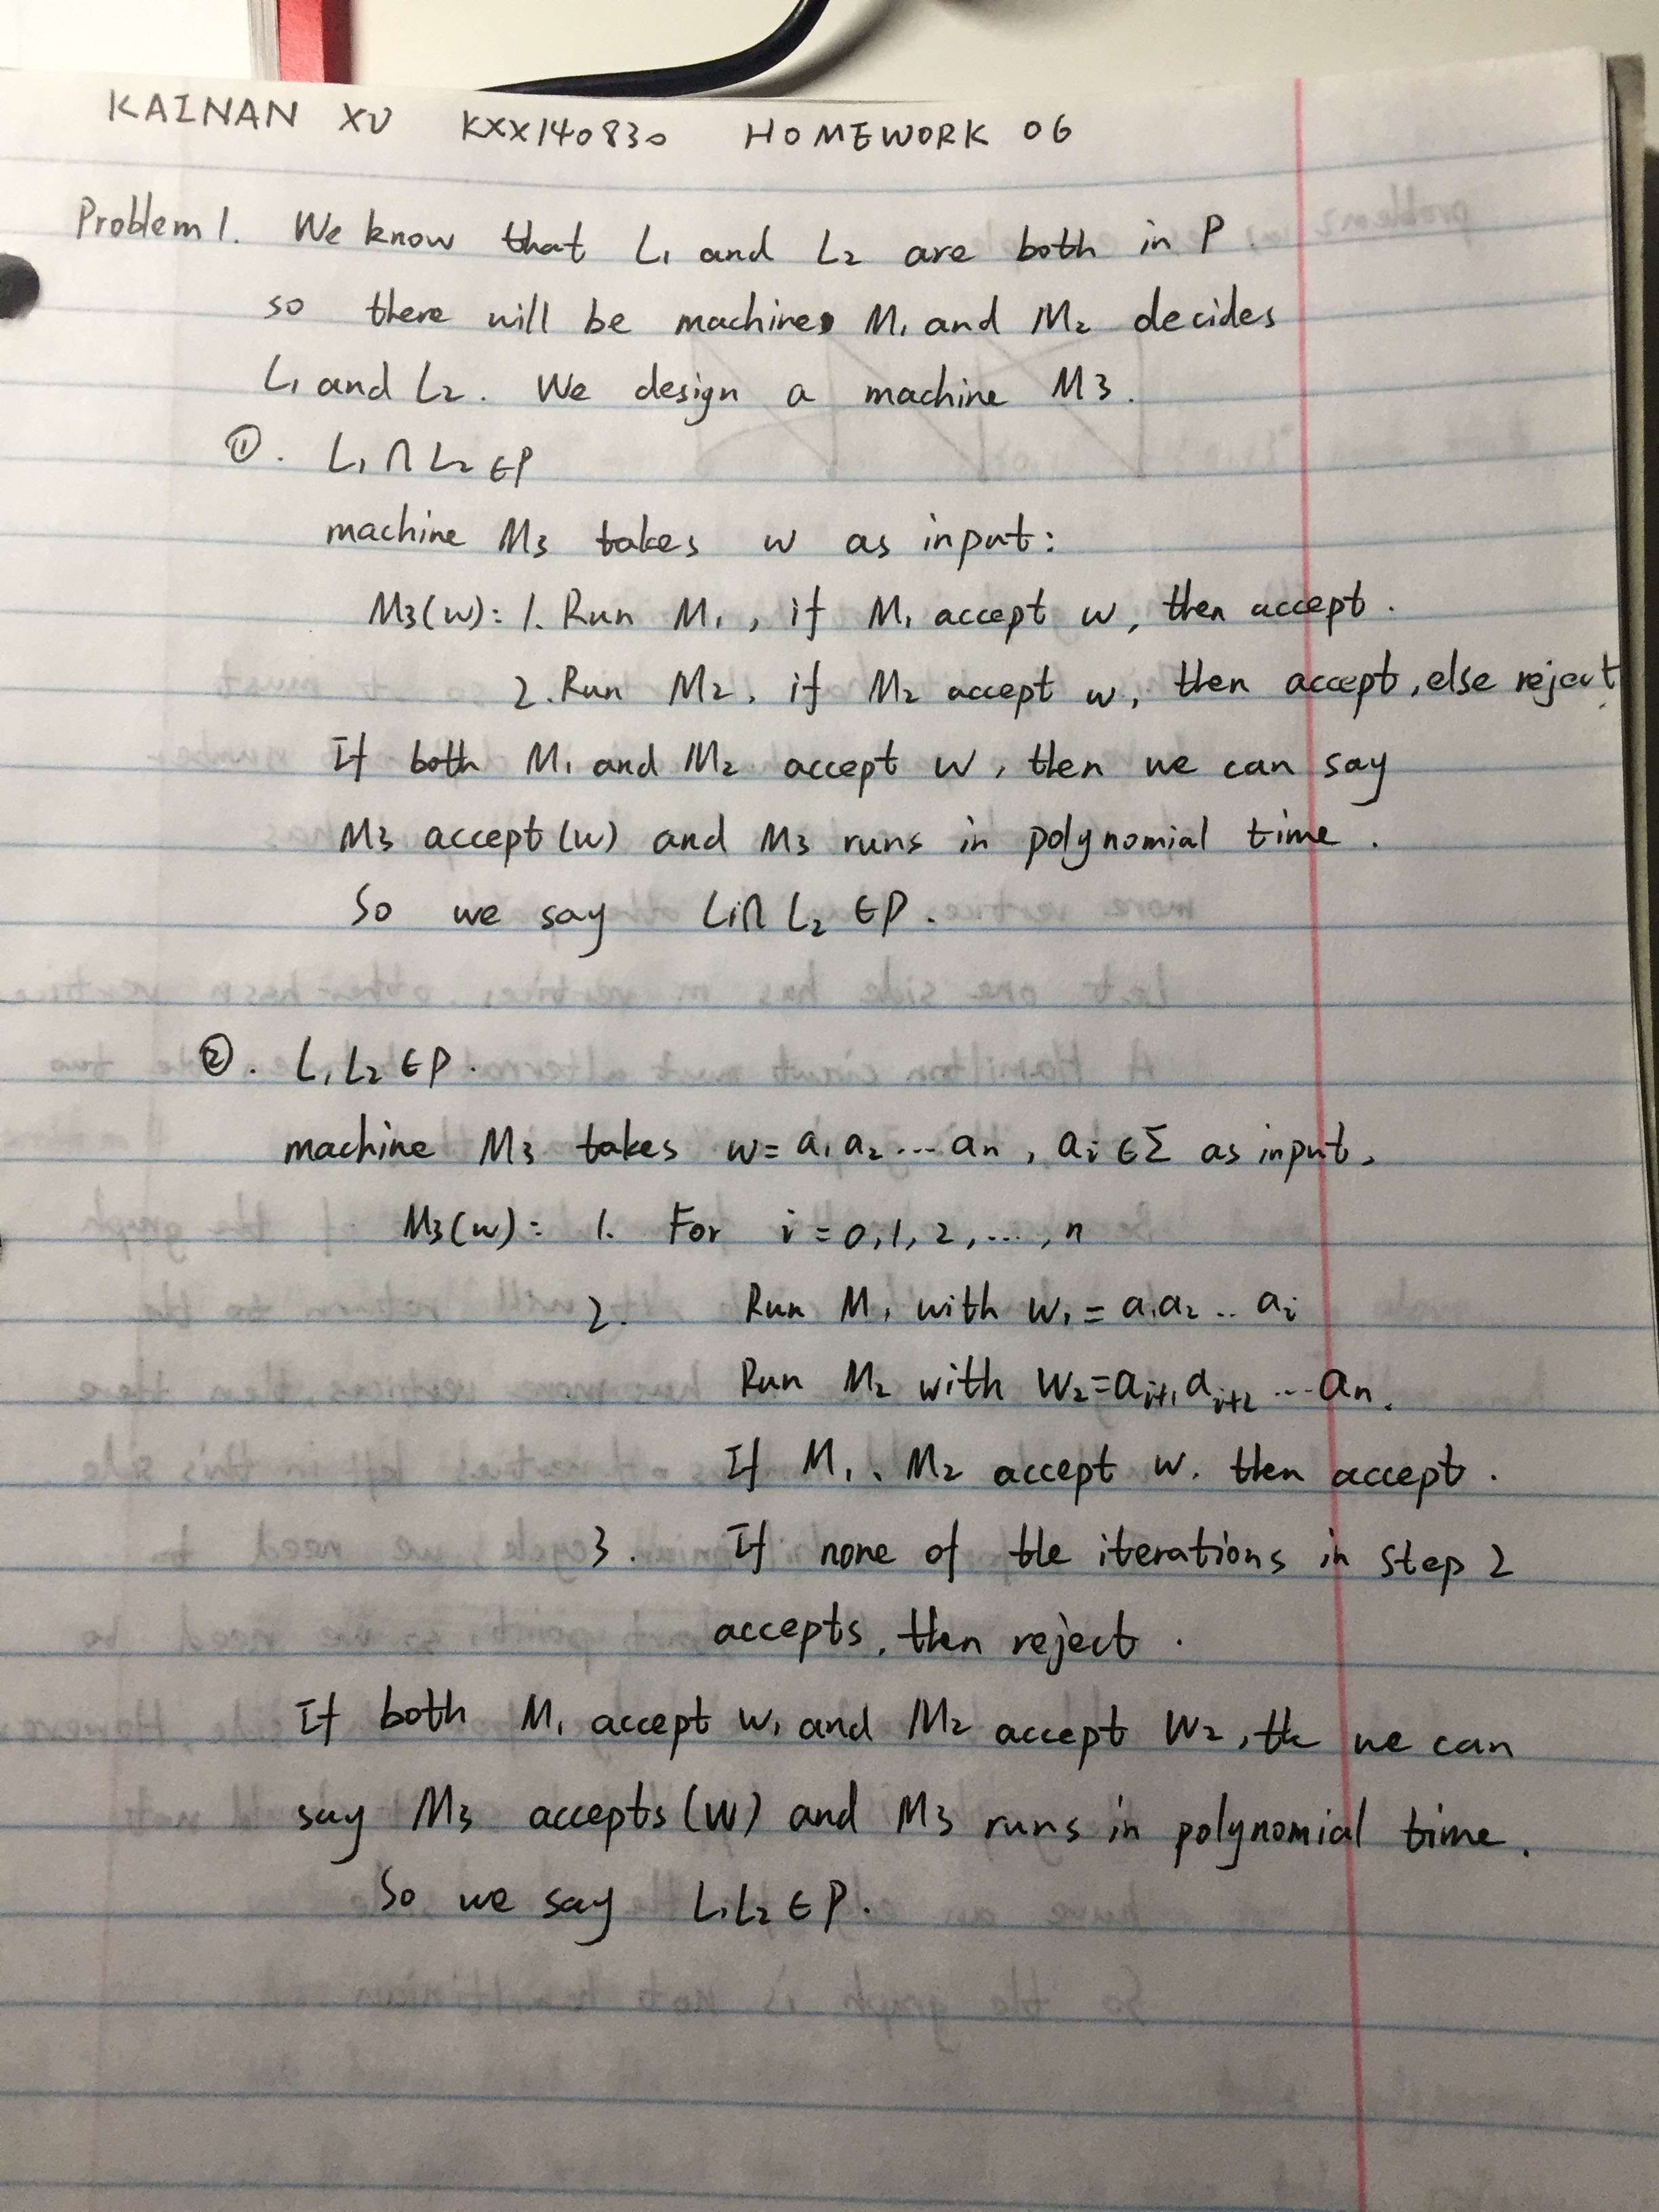 KAINAN XU KXX140830 HOMEWORK 06
Problem 1. We know that L₁ and L₂ are both in P.
so there will be machines M₁ and M₂ decides
L₁ and L₂. We design a machine M3.
①. L₁∩L₂∈P
machine M₃ takes w as input:
M₃(w): 1. Run M₁, if M₁ accept w, then accept.
2. Run M₂, if M₂ accept w, then accept, else reject.
If both M₁ and M₂ accept w, then we can say
M₃ accept(w) and M₃ runs in polynomial time.
So we say L₁∩L₂∈P.
②. L₁L₂∈P.
machine M₃ takes w=a₁a₂...aₙ, aᵢ∈Σ as input,
M₃(w): 1. For i=0,1,2,...,n
2. Run M₁ with w₁=a₁a₂..aᵢ
Run M₂ with w₂=aᵢ₊₁aᵢ₊₂...aₙ.
If M₁、M₂ accept w. then accept.
3. If none of the iterations in step 2
accepts, then reject.
If both M₁ accept w₁ and M₂ accept W₂, the we can
say M₃ accepts(W) and M₃ runs in polynomial time.
So we say L₁L₂∈P.